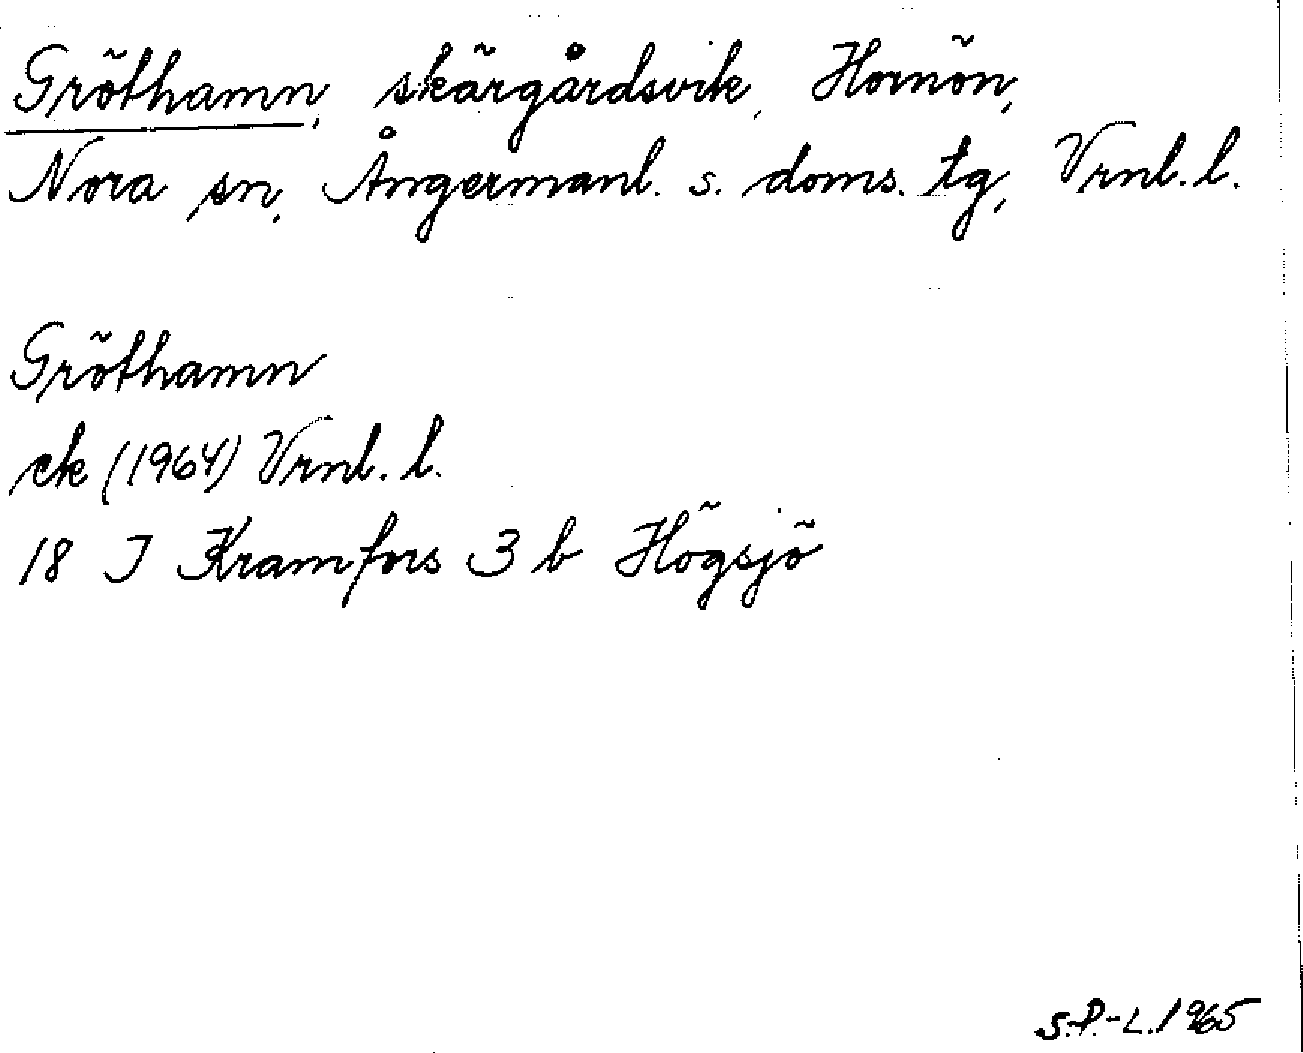 Gröthamn, skärgårdsvik, Hornön,
Nora sn, Ångermanl. s. doms. tg, Vrnl. l.
Gröthamn
ek (1964) Vrnl. l.
18 J Kramfors 3 b Högsjö
S.P.-L. 1965